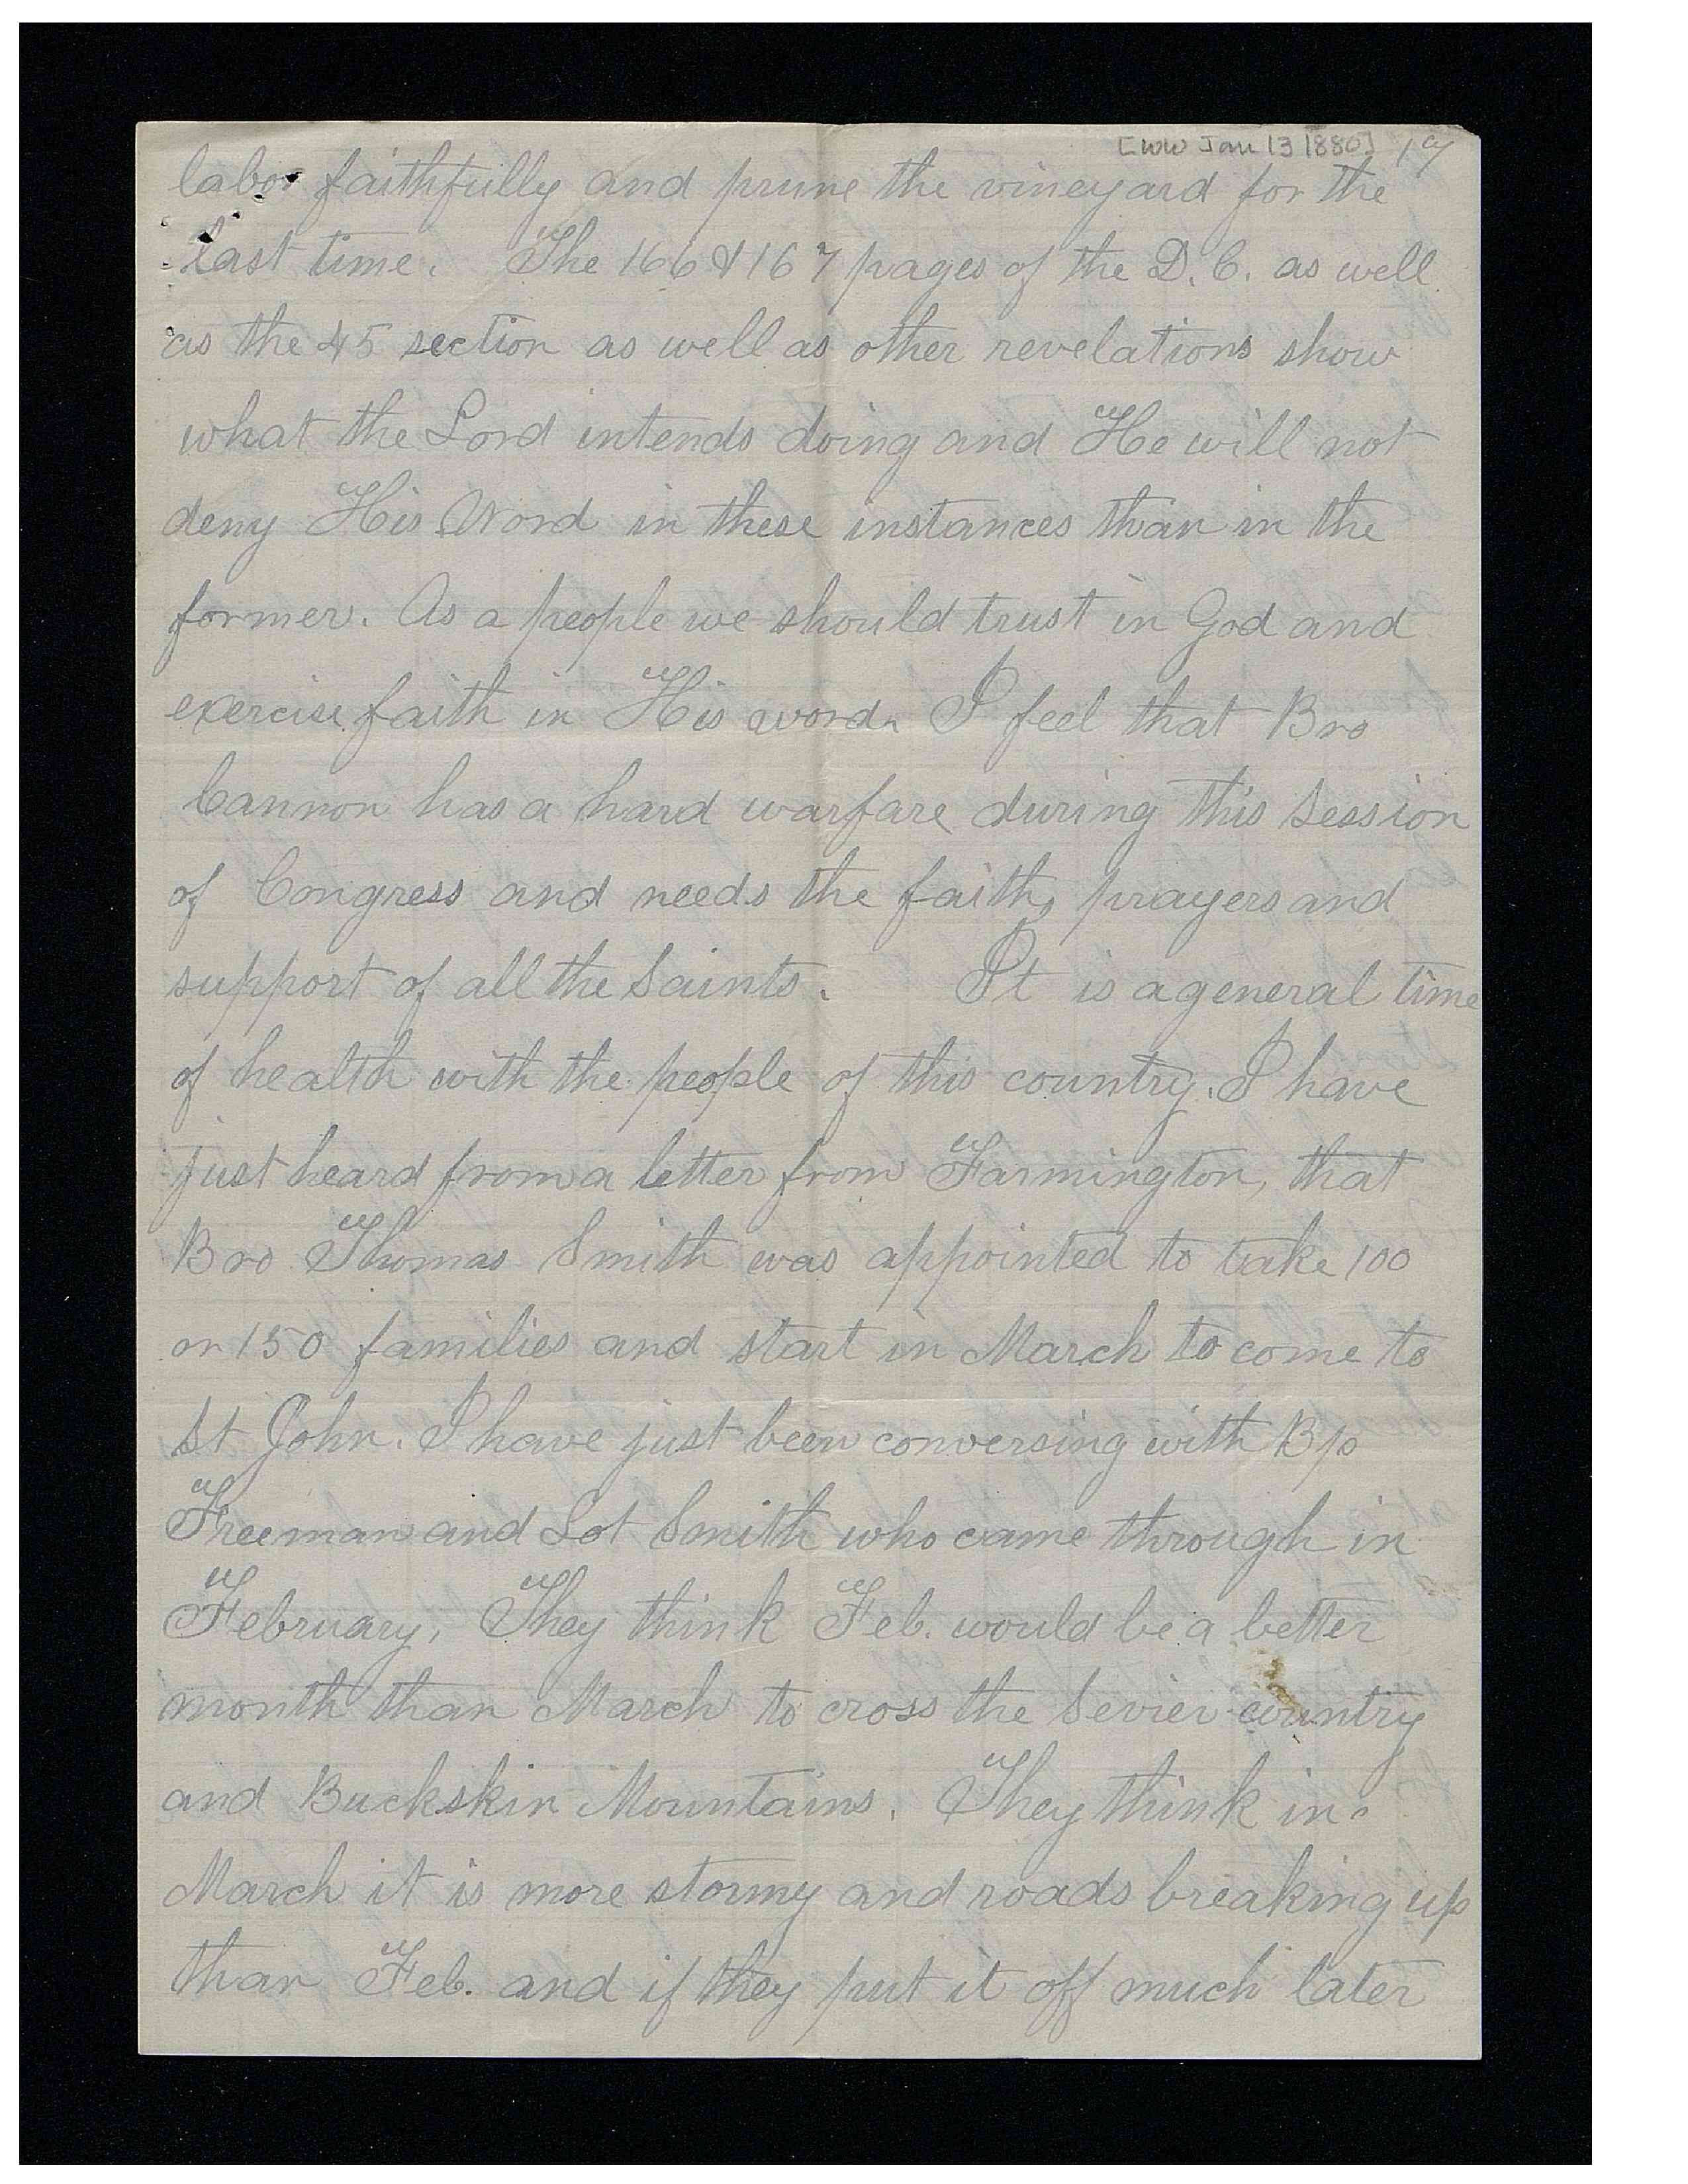 [WW Jan 13 1880] 19
labor faithfully and prune the vineyard for the
last time. The 166 & 167 pages of the D.C. as well
as the 45 section as well as other revelations show
what the Lord intends doing and He will not
deny His Word in these instances than in the
former. As a people we should trust in God and
exercise faith in His word. I feel that Bro
Cannon has a hard warfare during this session
of Congress and needs the faith, prayers and
support of all the Saints. It is a general time
of health with the people of this country. I have
just heard from a letter from Farmington, that
Bro Thomas Smith was appointed to take 100
or 150 families and start in March to come to
St John. I have just been conversing with Bp
Freeman and Lot Smith who came through in
February, They think Feb. would be a better
month than March to cross the Sevier country
and Buckskin Mountains. They think in
March it is more stormy and roads breaking up
than Feb. and if they put it off much later